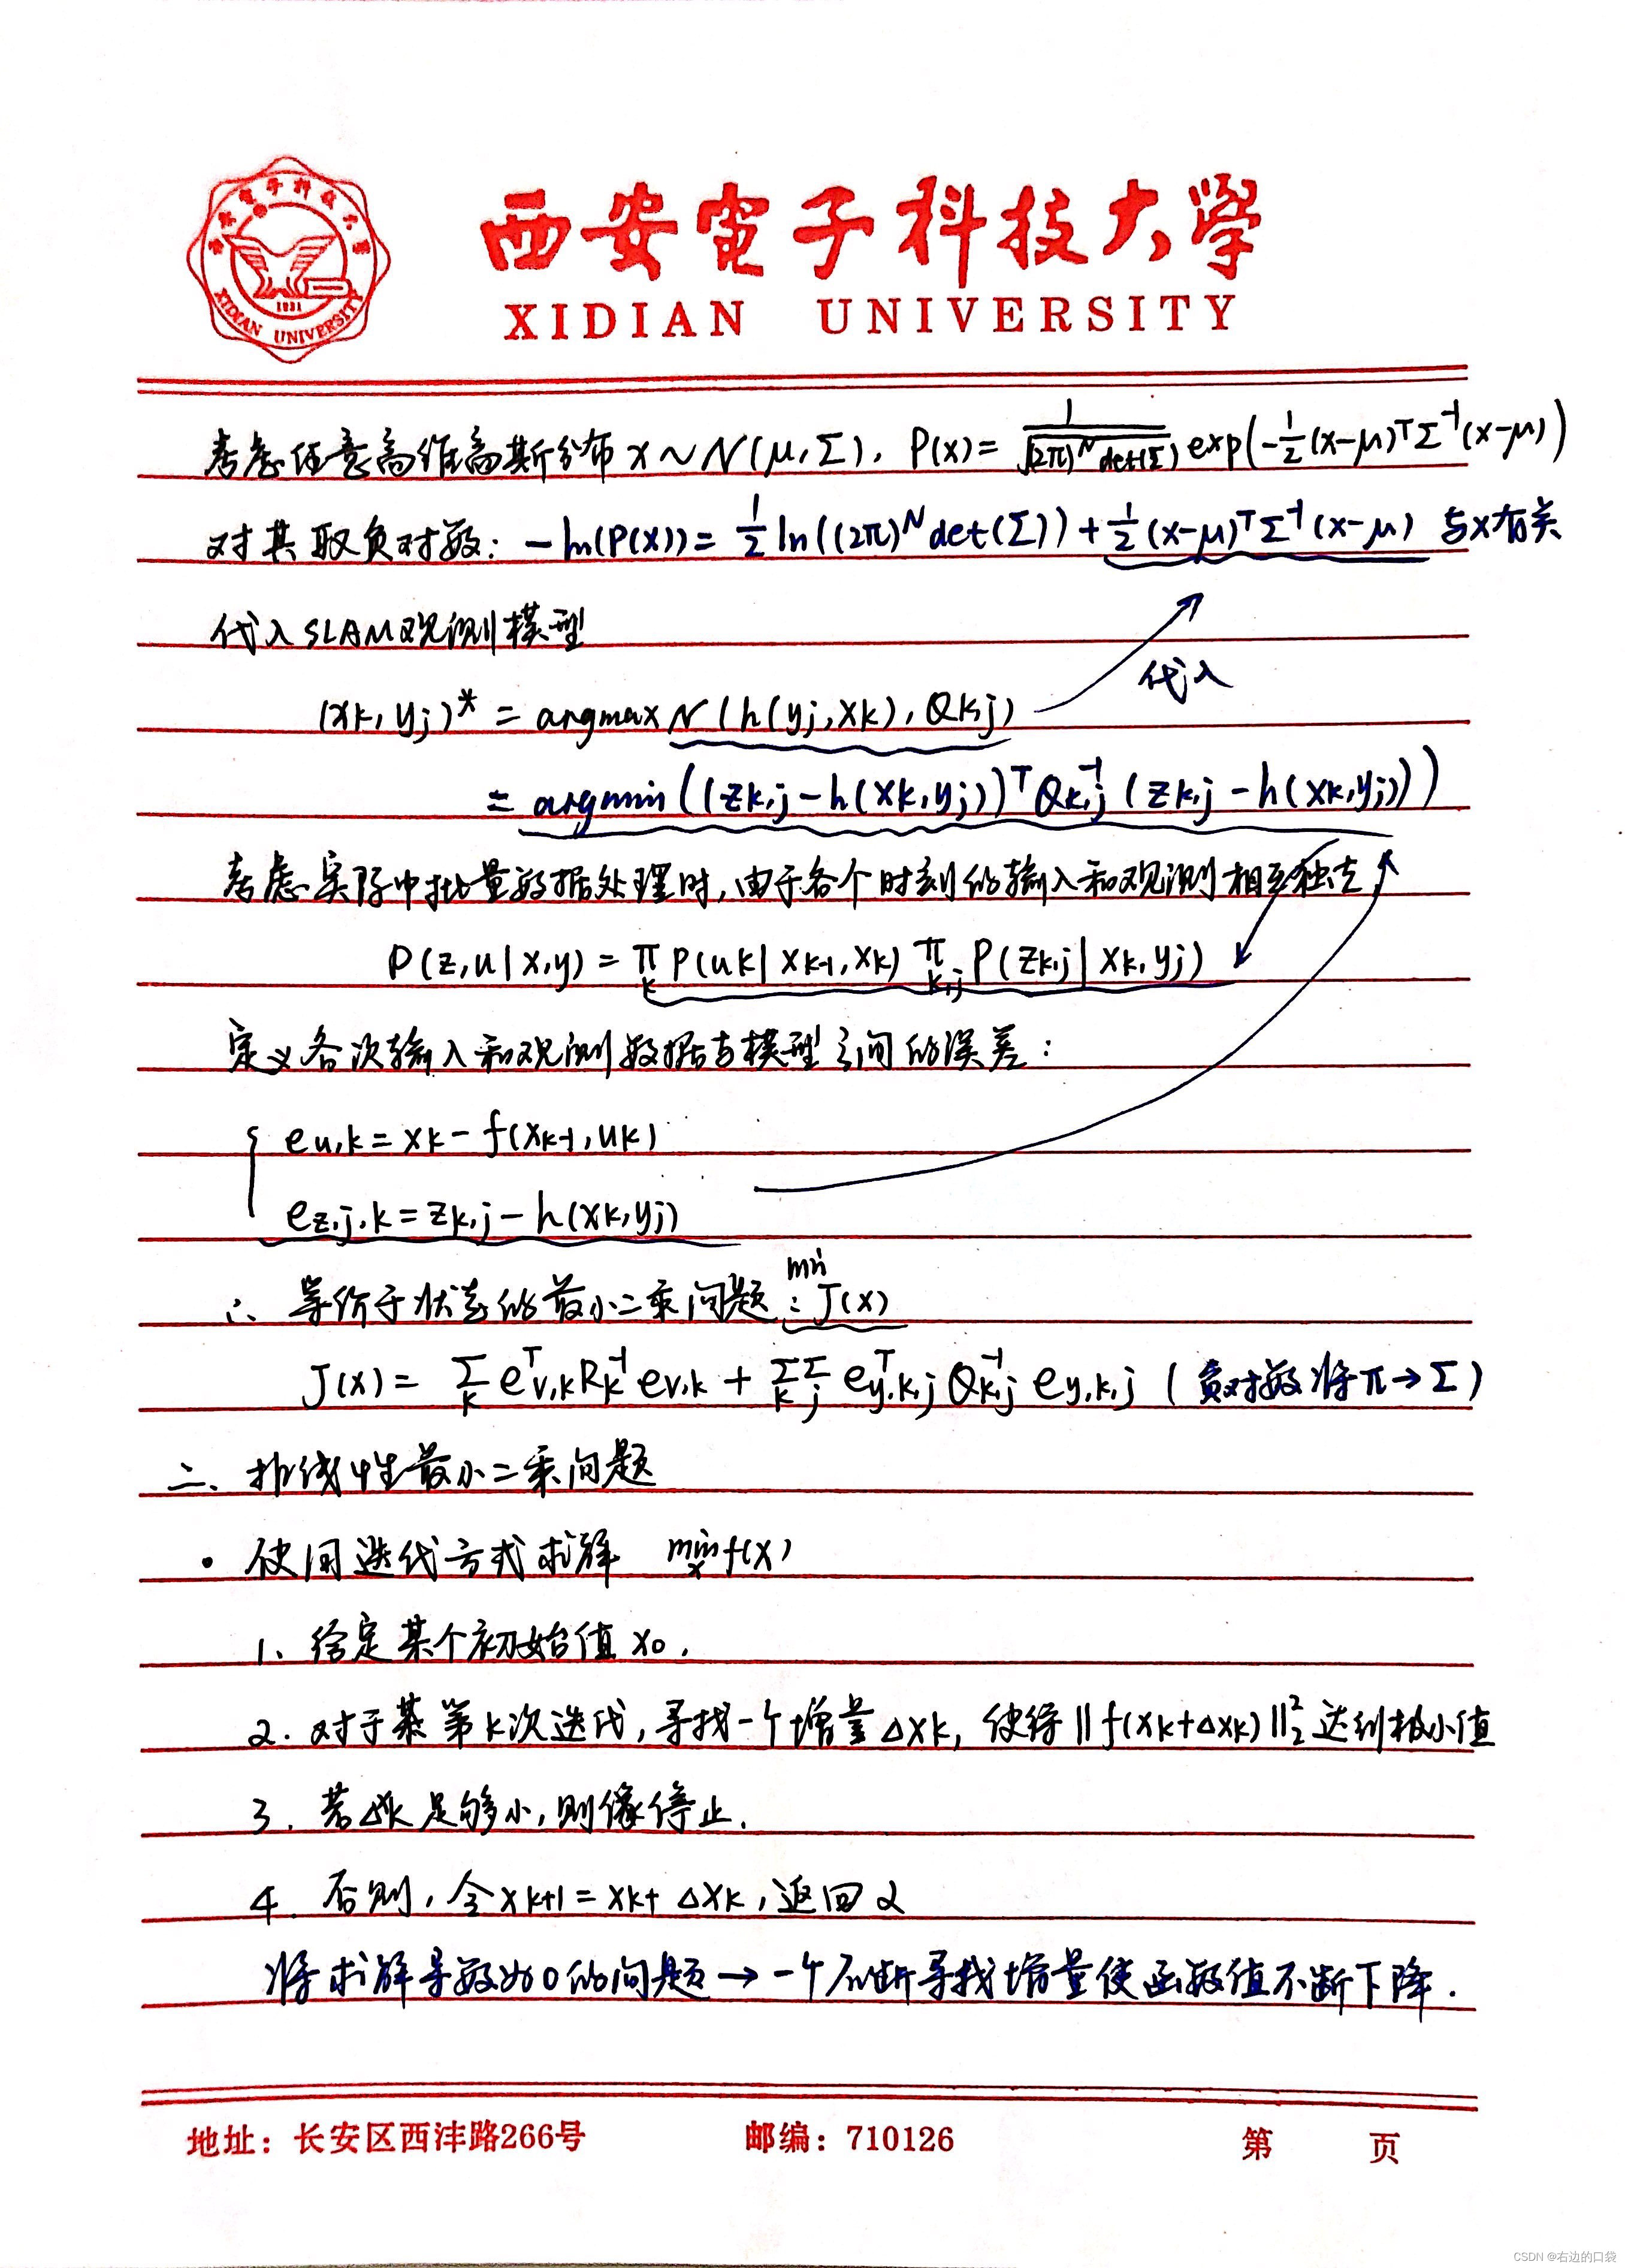 西安電子科技大學
XIDIAN UNIVERSITY
1931
XIDIAN UNIVERSITY
考虑任意高维高斯分布 x~N(μ,Σ), P(x)= 1/√((2π)^N det(Σ)) exp(-1/2 (x-μ)^T Σ^-1 (x-μ))
对其取负对数: -ln(P(x))= 1/2 ln((2π)^N det(Σ)) + 1/2 (x-μ)^T Σ^-1 (x-μ) 与x有关
代入SLAM观测模型
代入
(xk, yj)* = argmax N(h(yj,xk), Qk,j)
= argmin((zk,j-h(xk,yj))^T Qk,j^-1 (zk,j-h(xk,yj)))
考虑实际中批量数据处理时,由于各个时刻的输入和观测相互独立
P(z,u|x,y) = π_k P(uk|xk-1,xk) π_k,j P(zk,j|xk,yj)
定义各次输入和观测数据与模型之间的误差:
eu,k = xk - f(xk-1,uk)
ez,j,k = zk,j - h(xk,yj)
∴ 等价于状态的最小二乘问题: min J(x)
J(x) = Σ_k e^T_v,k Rk^-1 ev,k + Σ_k Σ_j e^T_y,k,j Qk,j^-1 ey,k,j (负对数将π→Σ)
二、非线性最小二乘问题
• 使用迭代方式求解 min_x f(x)
1、给定某个初始值 x0.
2. 对于第k次迭代,寻找一个增量Δxk, 使得||f(xk+Δxk)||_2^2 达到极小值
3. 若Δxk足够小,则停止.
4. 否则,令xk+1=xk+Δxk,返回2
将求解导数为0的问题→一个不断寻找增量使函数值不断下降.
地址：长安区西沣路266号 邮编：710126 第 页
CSDN @右边的口袋